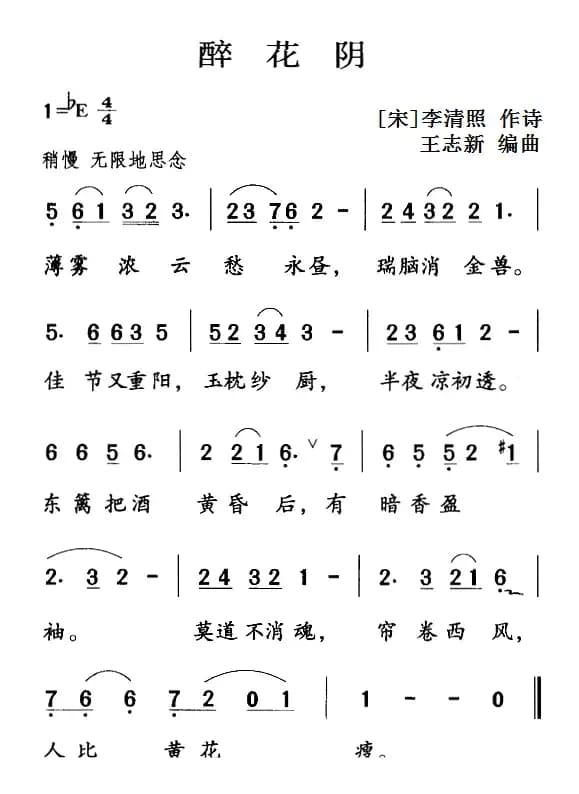 醉 花 阴
1=♭E 4/4
[宋]李清照 作诗
王志新 编曲
稍慢 无限地思念
5 6 1 3 2 3. | 2 3 7 6 2 - | 2 4 3 2 2 1. |
薄雾 浓 云 愁 永昼, 瑞脑消 金兽。
5. 6 6 6 3 5 | 5 2 3 4 3 - | 2 3 6 1 2 - |
佳 节又重阳, 玉枕纱 厨, 半夜凉初透。
6 6 5 6. | 2 2 1 6. ∨ 7 | 6 5 5 2 #1 |
东篱把酒 黄昏 后,有 暗香盈
2. 3 2 - | 2 4 3 2 2 - | 2. 3 2 1 6 |
袖。 莫道不消魂, 帘 卷西风,
7 6 6 7 2 0 1 | 1 - - 0 ‖
人比 黄花 瘦。